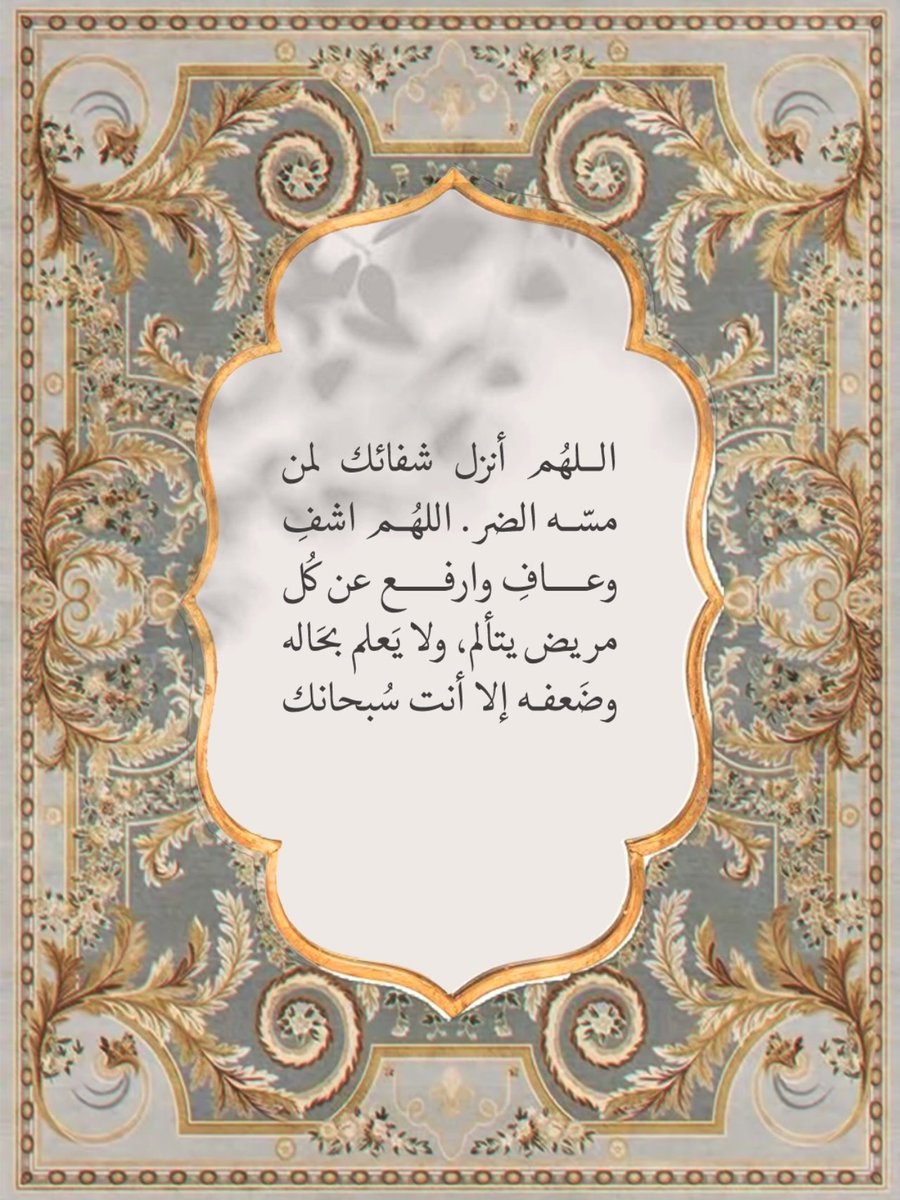 اللهُم أنزل شفائك لمن
مسّـه الضر. اللهُـم اشفِ
وعـافِ وارفـع عن كُل
مريض يتألم، ولا يَعلم بحَاله
وضَعفـه إلا أنت سُبحانك